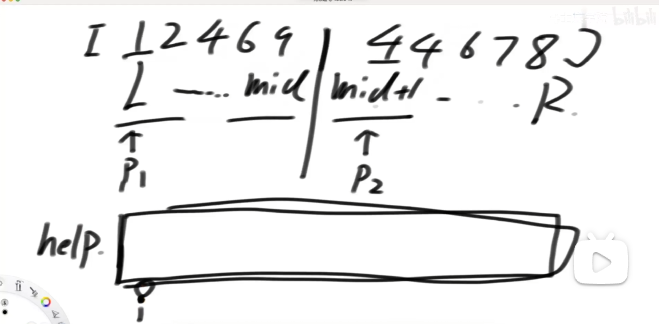 [ 1 2 4 6 9 | 4 4 6 7 8 ]
L ---.. mid | mid+1 - . . . R.
↑ ↑
P1 P2
help.
i
bilibili